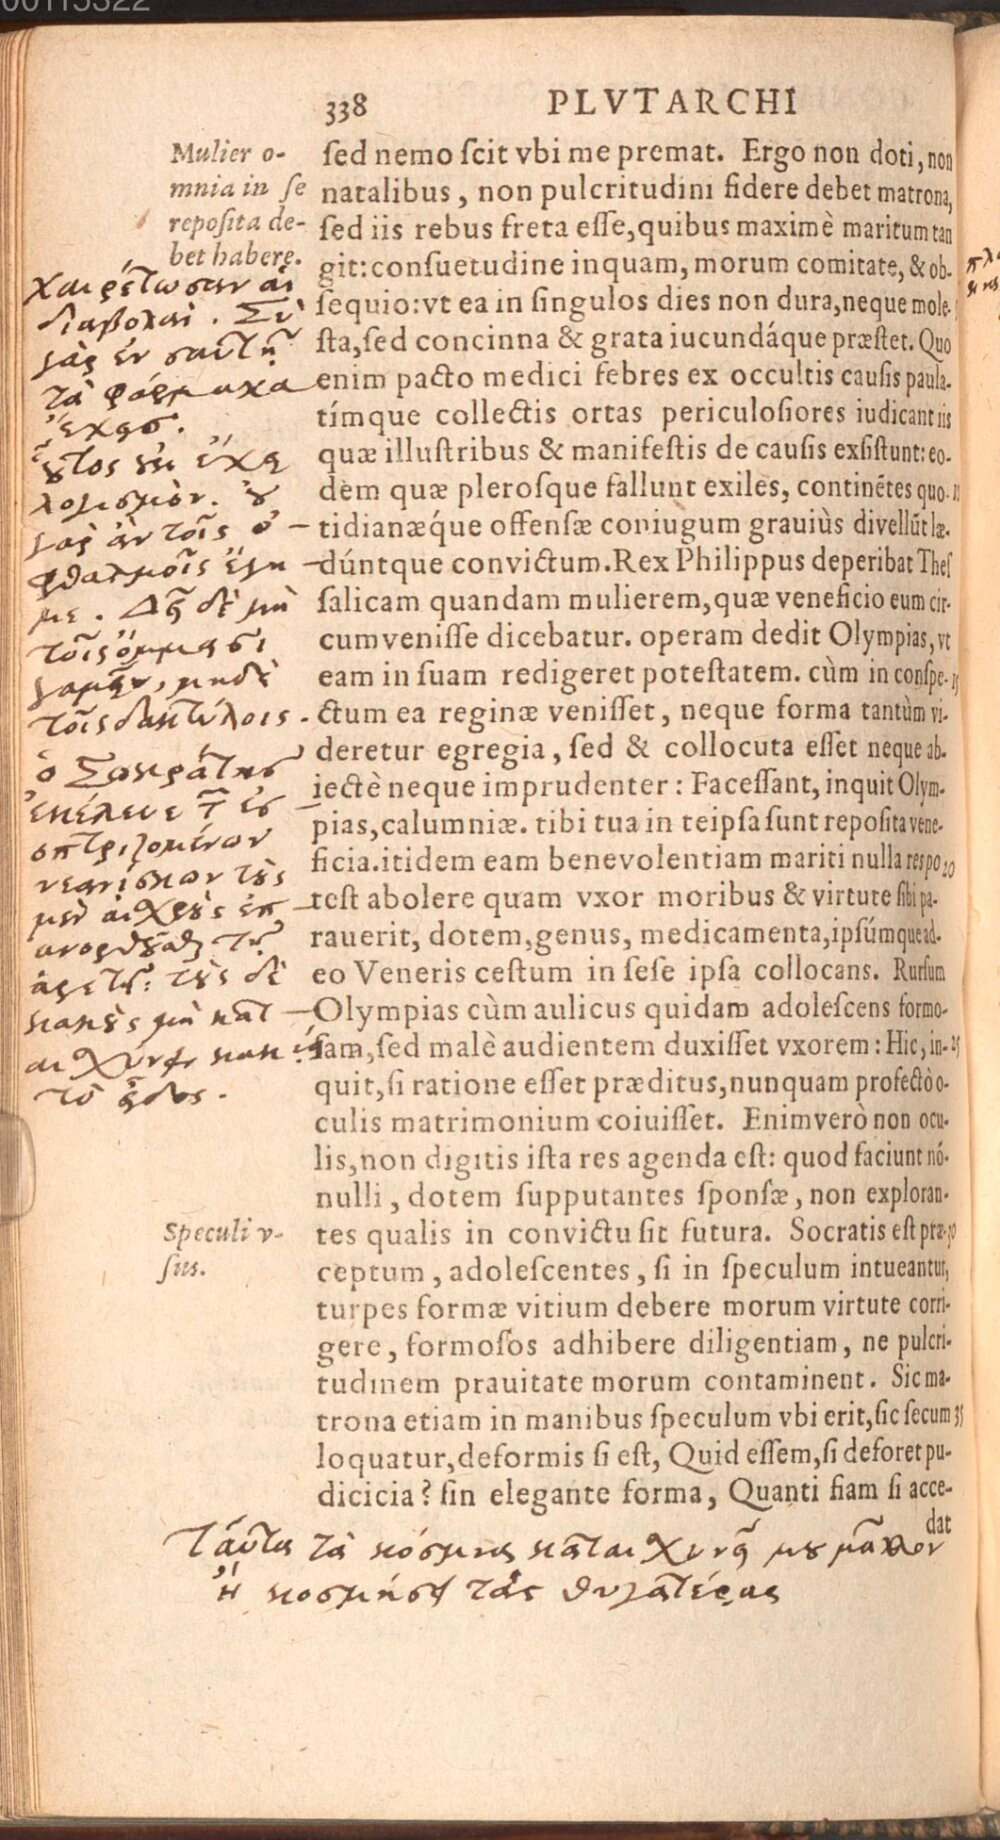 00115322
338 PLVTARCHI
Mulier o-
mnia in ſe
repoſita de-
bet habere.
χαιρέτωσαν αἱ
διαβολαί. Σὺ
γὰρ ἐν σαυτῇ
τὰ φάρμακα
ἔχεις.
οὗτος οὐκ ἔχει
λογισμόν. οὐ
γὰρ ἂν τοῖς ὀ-
φθαλμοῖς ἔγη-
με. Δεῖ δὲ μὴ
τοῖς ὄμμασι
γαμεῖν, μηδὲ
τοῖς δακτύλοις.
ὁ Σωκράτης
ἐκέλευε τῶν ἐσ-
οπτριζομένων
νεανίσκων τοὺς
μὲν αἰσχροὺς ἐπ-
ανορθοῦσθαι τῇ
ἀρετῇ: τοὺς δὲ
καλοὺς μὴ κατ-
αισχύνειν κακίᾳ
τὸ εἶδος.
Speculi v-
ſus.
ſed nemo ſcit vbi me premat. Ergo non doti, non
natalibus, non pulcritudini fidere debet matrona,
ſed iis rebus freta eſſe, quibus maximè maritum tan
git: conſuetudine inquam, morum comitate, & ob-
ſequio: vt ea in ſingulos dies non dura, neque mole-
ſta, ſed concinna & grata iucundáque præſtet. Quo
enim pacto medici febres ex occultis cauſis paula-
tímque collectis ortas periculoſiores iudicant iis
quæ illuſtribus & manifeſtis de cauſis exſiſtunt: eo-
dem quæ pleroſque fallunt exiles, continẽtes quo-
tidianæque offenſæ coniugum grauiùs divellũt læ-
dúntque convictum. Rex Philippus deperibat Theſ
ſalicam quandam mulierem, quæ veneficio eum cir-
cumveniſſe dicebatur. operam dedit Olympias, vt
eam in ſuam redigeret poteſtatem. cùm in conſpe- 15
ctum ea reginæ veniſſet, neque forma tantùm vi-
deretur egregia, ſed & collocuta eſſet neque ab-
iectè neque imprudenter: Faceſſant, inquit Olym-
pias, calumniæ. tibi tua in teipſa ſunt repoſita vene-
ficia. itidem eam benevolentiam mariti nulla res po 20
teſt abolere quam vxor moribus & virtute ſibi pa-
rauerit, dotem, genus, medicamenta, ipſúmque ad-
eo Veneris ceſtum in ſeſe ipſa collocans. Rurſum
Olympias cùm aulicus quidam adoleſcens formo-
ſam, ſed malè audientem duxiſſet vxorem: Hic, in- 25
quit, ſi ratione eſſet præditus, nunquam profectò o-
culis matrimonium coiuiſſet. Enimverò non ocu-
lis, non digitis iſta res agenda eſt: quod faciunt nó-
nulli, dotem ſupputantes ſponſæ, non exploran-
tes qualis in convictu ſit futura. Socratis eſt præ- 30
ceptum, adoleſcentes, ſi in ſpeculum intueantur,
turpes formæ vitium debere morum virtute corri-
gere, formoſos adhibere diligentiam, ne pulcri-
tudinem prauitate morum contaminent. Sic ma-
trona etiam in manibus ſpeculum vbi erit, ſic ſecum 35
loquatur, deformis ſi eſt, Quid eſſem, ſi deforet pu-
dicicia? ſin elegante forma, Quanti fiam ſi acce-
dat
Ταῦτα τὰ κόσμια καταισχυνεῖ μου μᾶλλον
ἢ κοσμήσει τὰς θυγατέρας